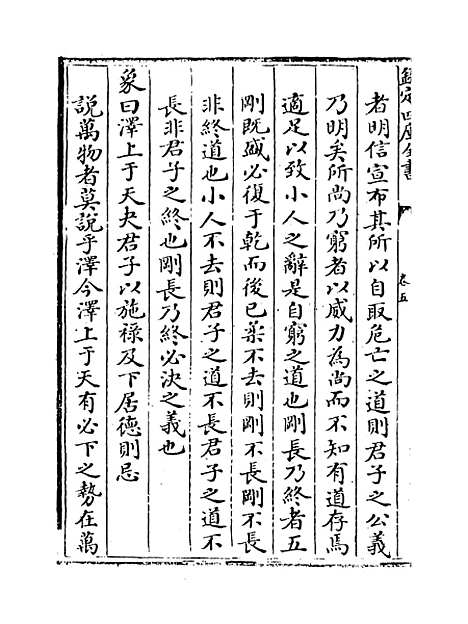 欽定四庫全書
卷五
者明信宣布其所以自取危亡之道則君子之公義
乃明矣所尚乃窮者以威力為尚而不知有道存焉
適足以致小人之辭是自窮之道也剛長乃終者五
剛既盛必復于乾而後已柔不去則剛不長剛不長
非終道也小人不去則君子之道不長君子之道不
長非君子之終也剛長乃終必決之義也
象曰澤上于天夬君子以施禄及下居德則忌
説萬物者莫説乎澤今澤上于天有必下之勢在萬